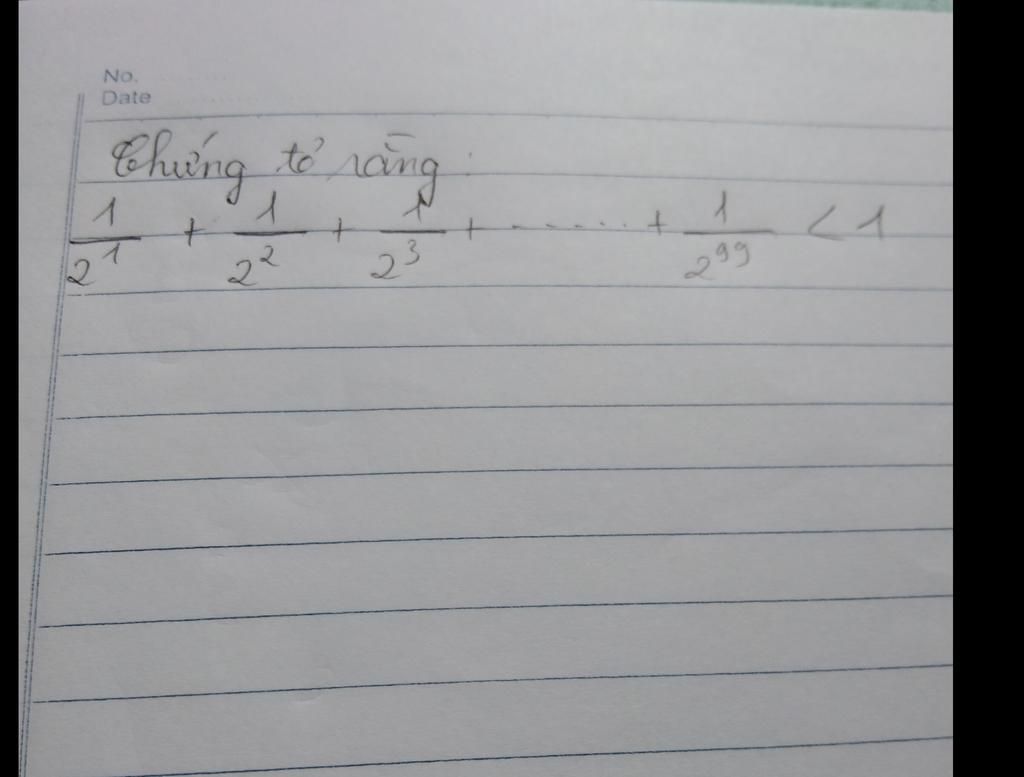 No.
Date
Chứng tỏ rằng:
1/2^1 + 1/2^2 + 1/2^3 + ......... + 1/2^99 < 1